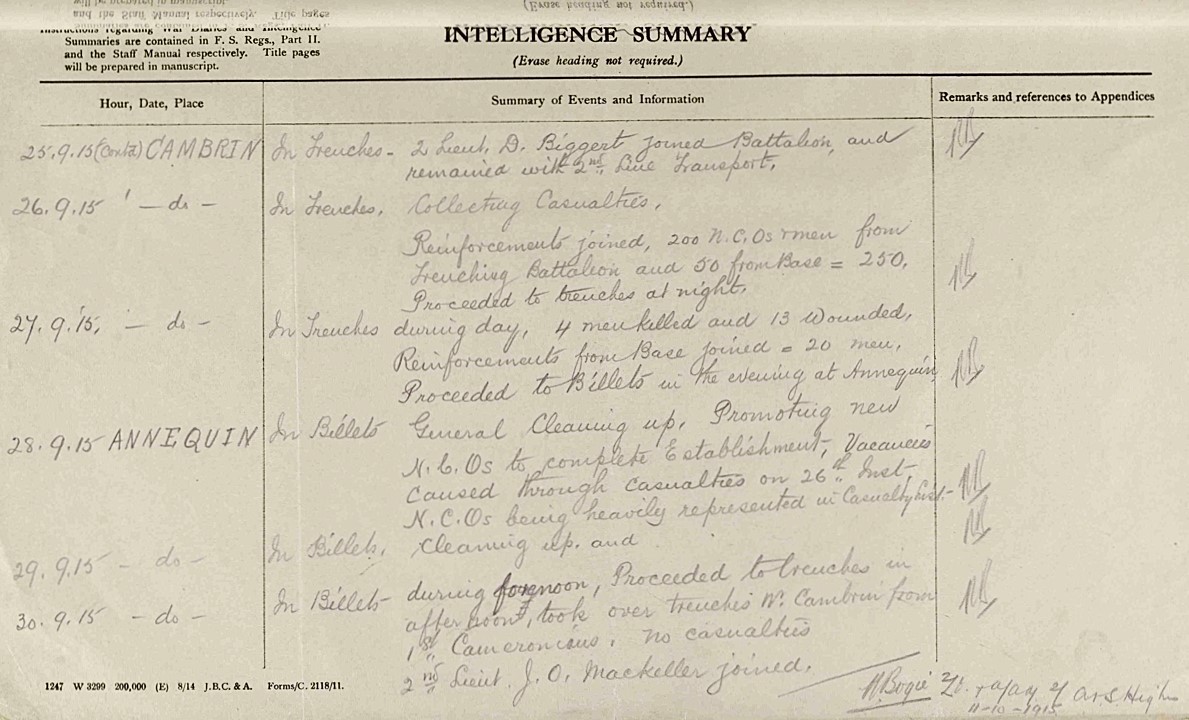 and the Staff Manual respectively. Title pages
(Erase heading not required.)
Instructions regarding War Diaries and Intelligence
Summaries are contained in F. S. Regs., Part II.
and the Staff Manual respectively. Title pages
will be prepared in manuscript.
INTELLIGENCE SUMMARY
(Erase heading not required.)
Hour, Date, Place
Summary of Events and Information
Remarks and references to Appendices
25.9.15 (contd) CAMBRIN In Trenches - 2 Lieut. D. Biggert joined Battalion, and
remained with 2nd Line Transport.
26.9.15 - do - In Trenches. Collecting Casualties.
Reinforcements joined, 200 N.C.Os & men from
Trenching Battalion and 50 from Base = 250.
Proceeded to trenches at night.
27.9.15, - do - In Trenches during day, 4 men killed and 13 Wounded,
Reinforcements from Base joined = 20 men,
Proceeded to Billets in the evening at Annequin
28.9.15 ANNEQUIN In Billets General Cleaning up, Promoting new
N.C.Os to complete Establishment, Vacancies
caused through casualties on 26th Inst,
N.C.Os being heavily represented in Casualty List.
29.9.15 - do - In Billets, Cleaning up. and
30.9.15 - do - In Billets during forenoon, Proceeded to trenches in
afternoon, took over trenches N. Cambrin from
1st Cameronians. No casualties
2nd Lieut. J. O. Mackeller joined.
Bogie Lt. + a/adj of A.&S. Highrs
11-10-1915
1247 W 3299 200,000 (E) 8/14 J.B.C. & A. Forms/C. 2118/11.